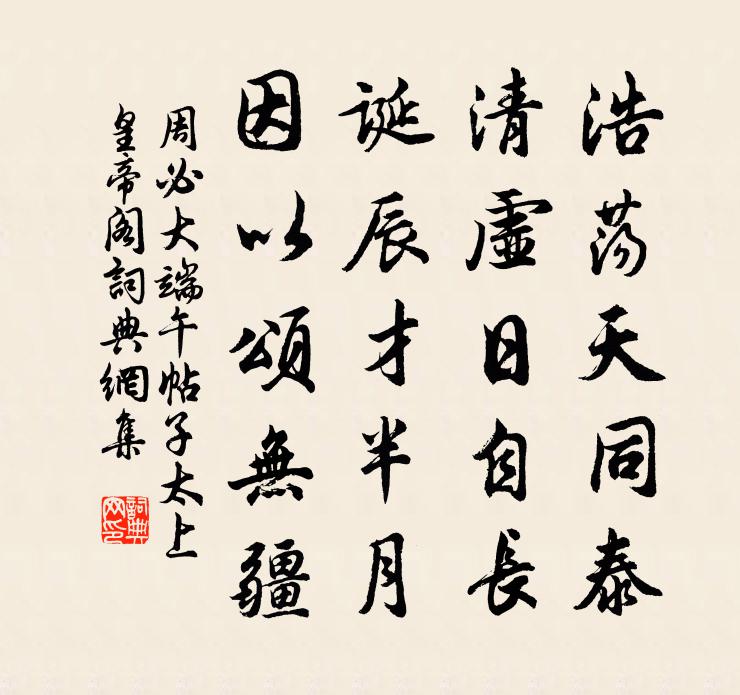 浩蕩天同泰
清虛日自長
誕辰才半月
因以頌無疆
周必大端午帖子太上
皇帝閣詞典網集
詞典
网印